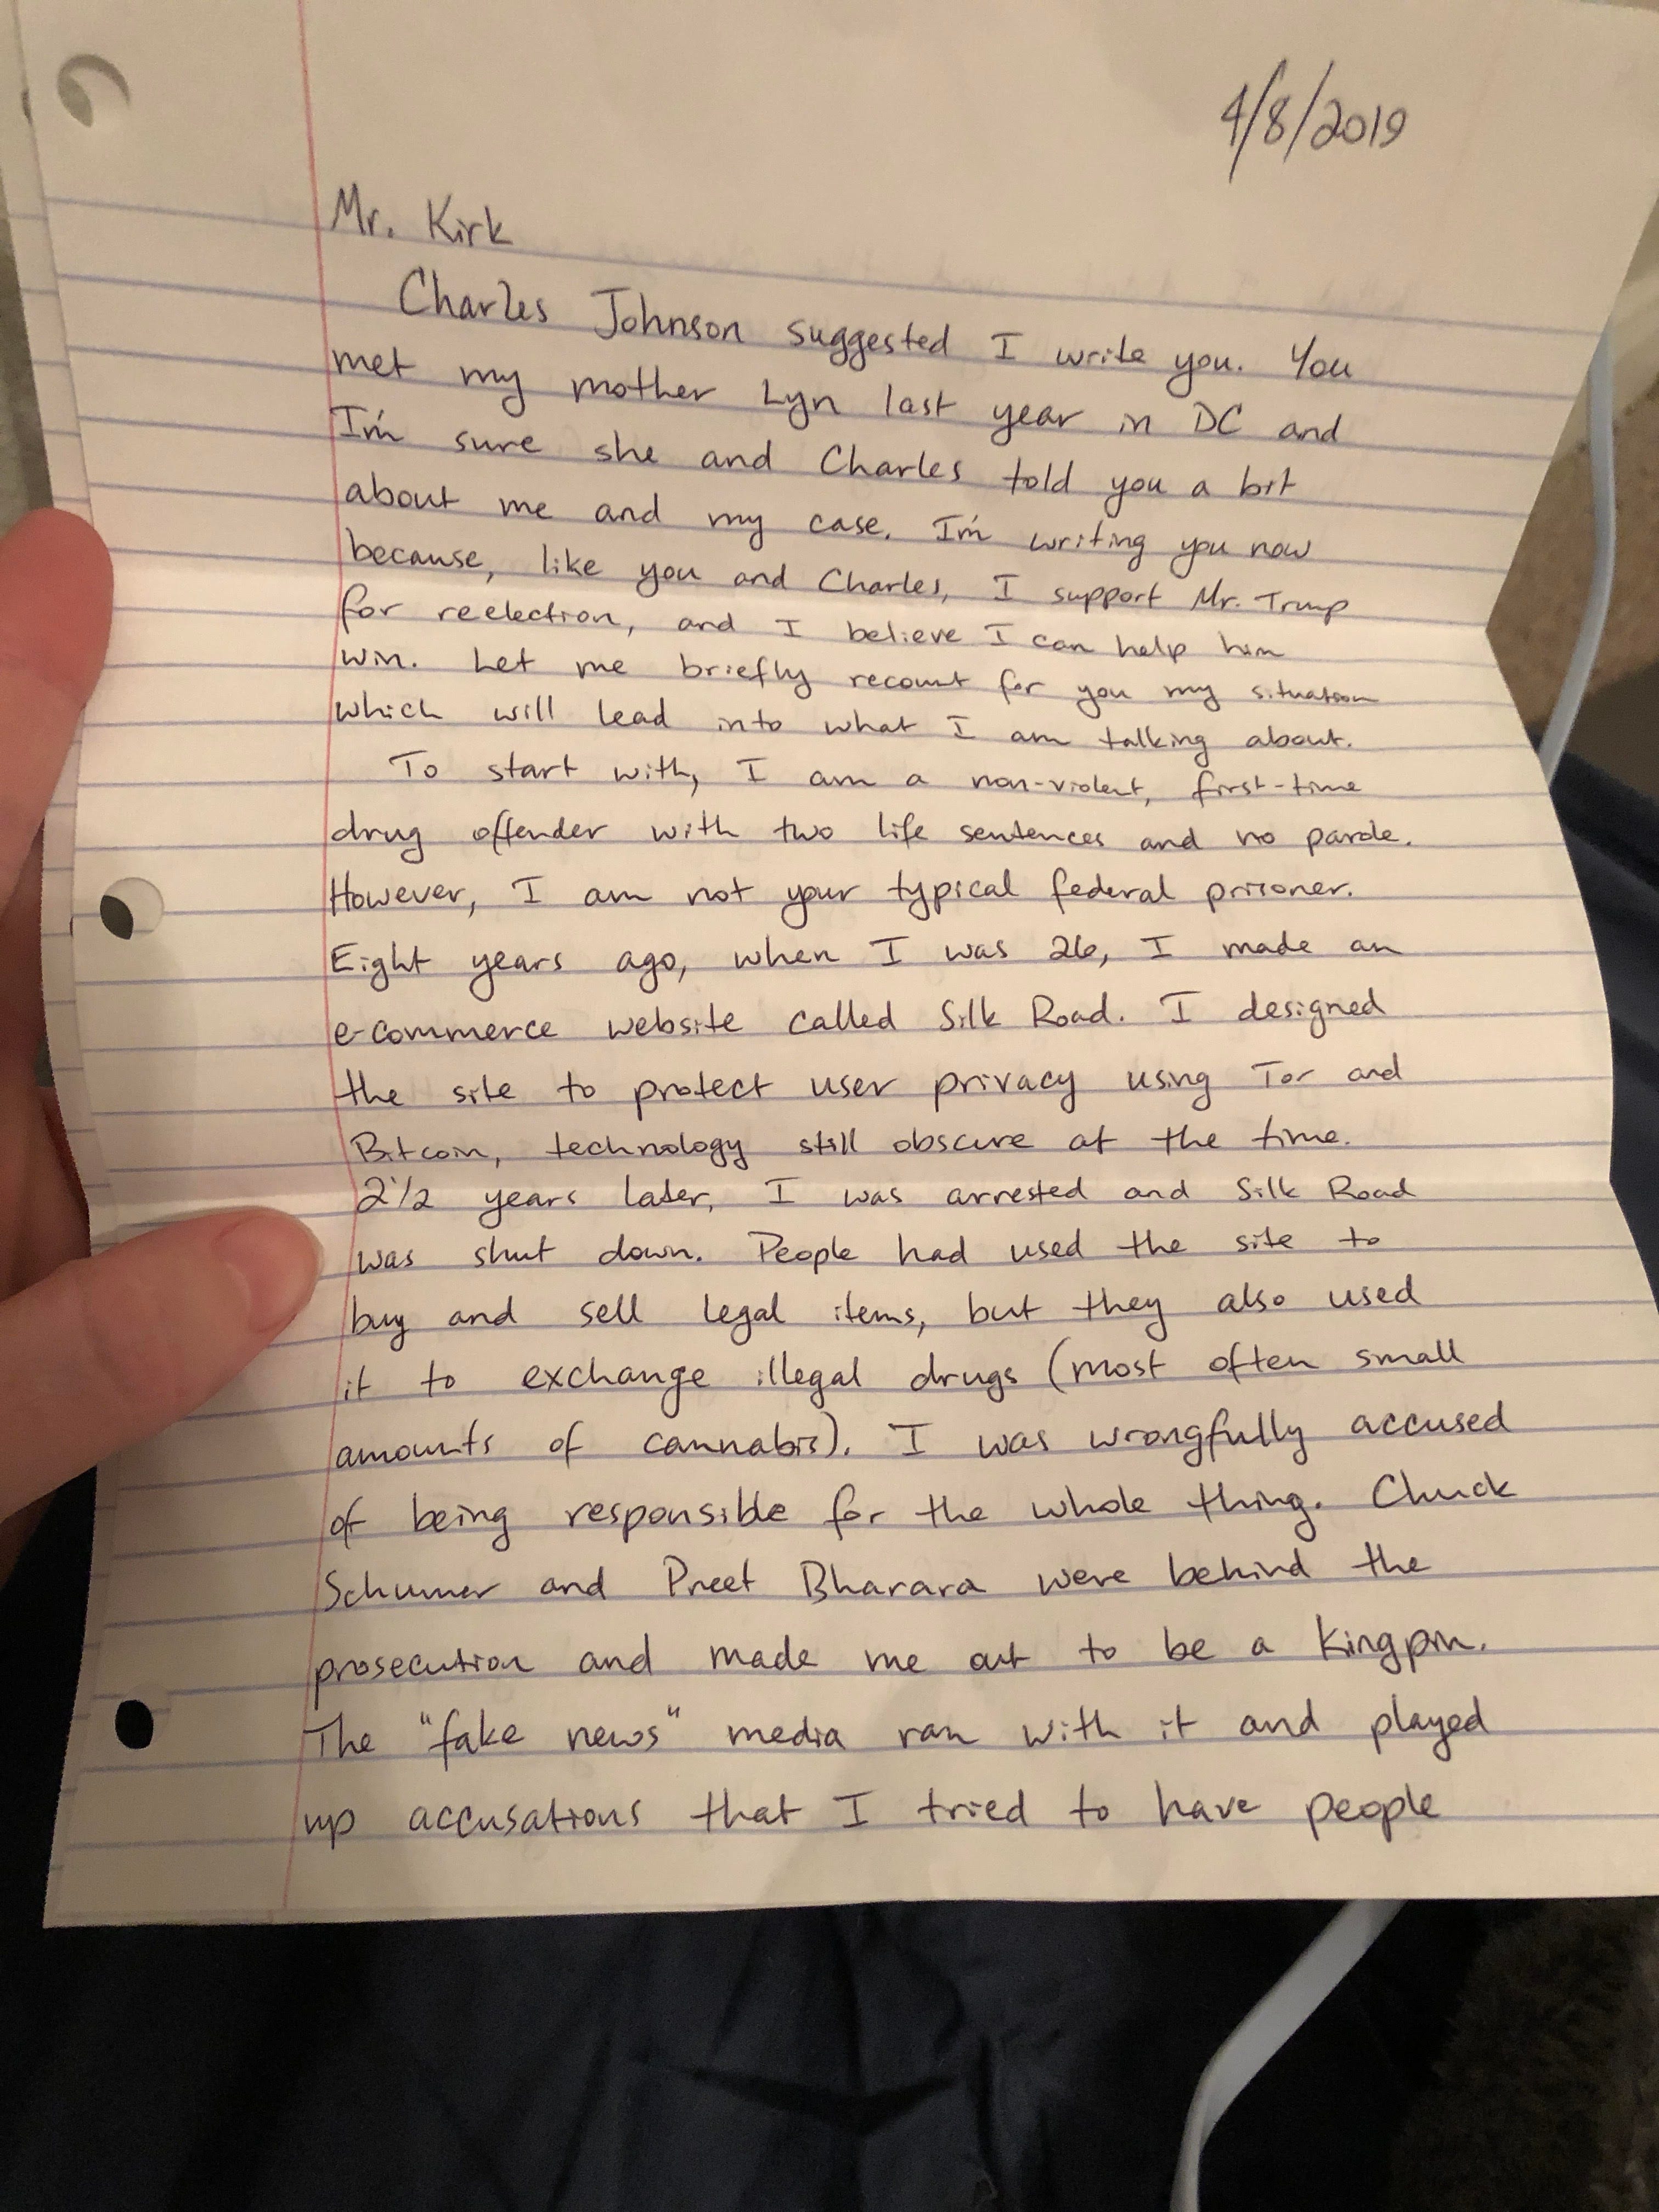 4/8/2019
Mr. Kirk
Charles Johnson suggested I write you. You
met my mother Lyn last year in DC and
I'm sure she and Charles told you a bit
about me and my case. I'm writing you now
because, like you and Charles, I support Mr. Trump
for reelection, and I believe I can help him
win. Let me briefly recount for you my situation
which will lead into what I am talking about.
To start with, I am a non-violent, first-time
drug offender with two life sentences and no parole.
However, I am not your typical federal prisoner.
Eight years ago, when I was 26, I made an
e-commerce website called Silk Road. I designed
the site to protect user privacy using Tor and
Bitcoin, technology still obscure at the time.
2 1/2 years later, I was arrested and Silk Road
was shut down. People had used the site to
buy and sell legal items, but they also used
it to exchange illegal drugs (most often small
amounts of cannabis). I was wrongfully accused
of being responsible for the whole thing. Chuck
Schumer and Preet Bharara were behind the
prosecution and made me out to be a Kingpin.
The "fake news" media ran with it and played
up accusations that I tried to have people